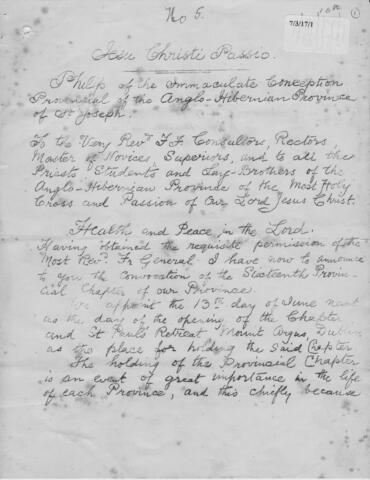 No 5.
1
7/3/17/1
Jesu Christi Passio.
Philip of the Immaculate Conception
Provincial of the Anglo-Hibernian Province
of St Joseph.
To the Very Revd F.F. Consultors, Rectors,
Master of Novices, Superiors, and to all the
Priests, Students and Lay-Brothers of the
Anglo-Hibernian Province of the Most Holy
Cross and Passion of Our Lord Jesus Christ.
Health and Peace in the Lord.
Having obtained the requisite permission of the
Most Revd. Fr General I have now to announce
to you the Convocation of the Sixteenth Provin-
cial Chapter of our Province.
We appoint the 13th day of June next
as the day of the opening of the Chapter
and St Paul's Retreat Mount Argus, Dublin
as the place for holding the said Chapter
The holding of the Provincial Chapter
is an event of great importance in the life
of each Province, and this chiefly because